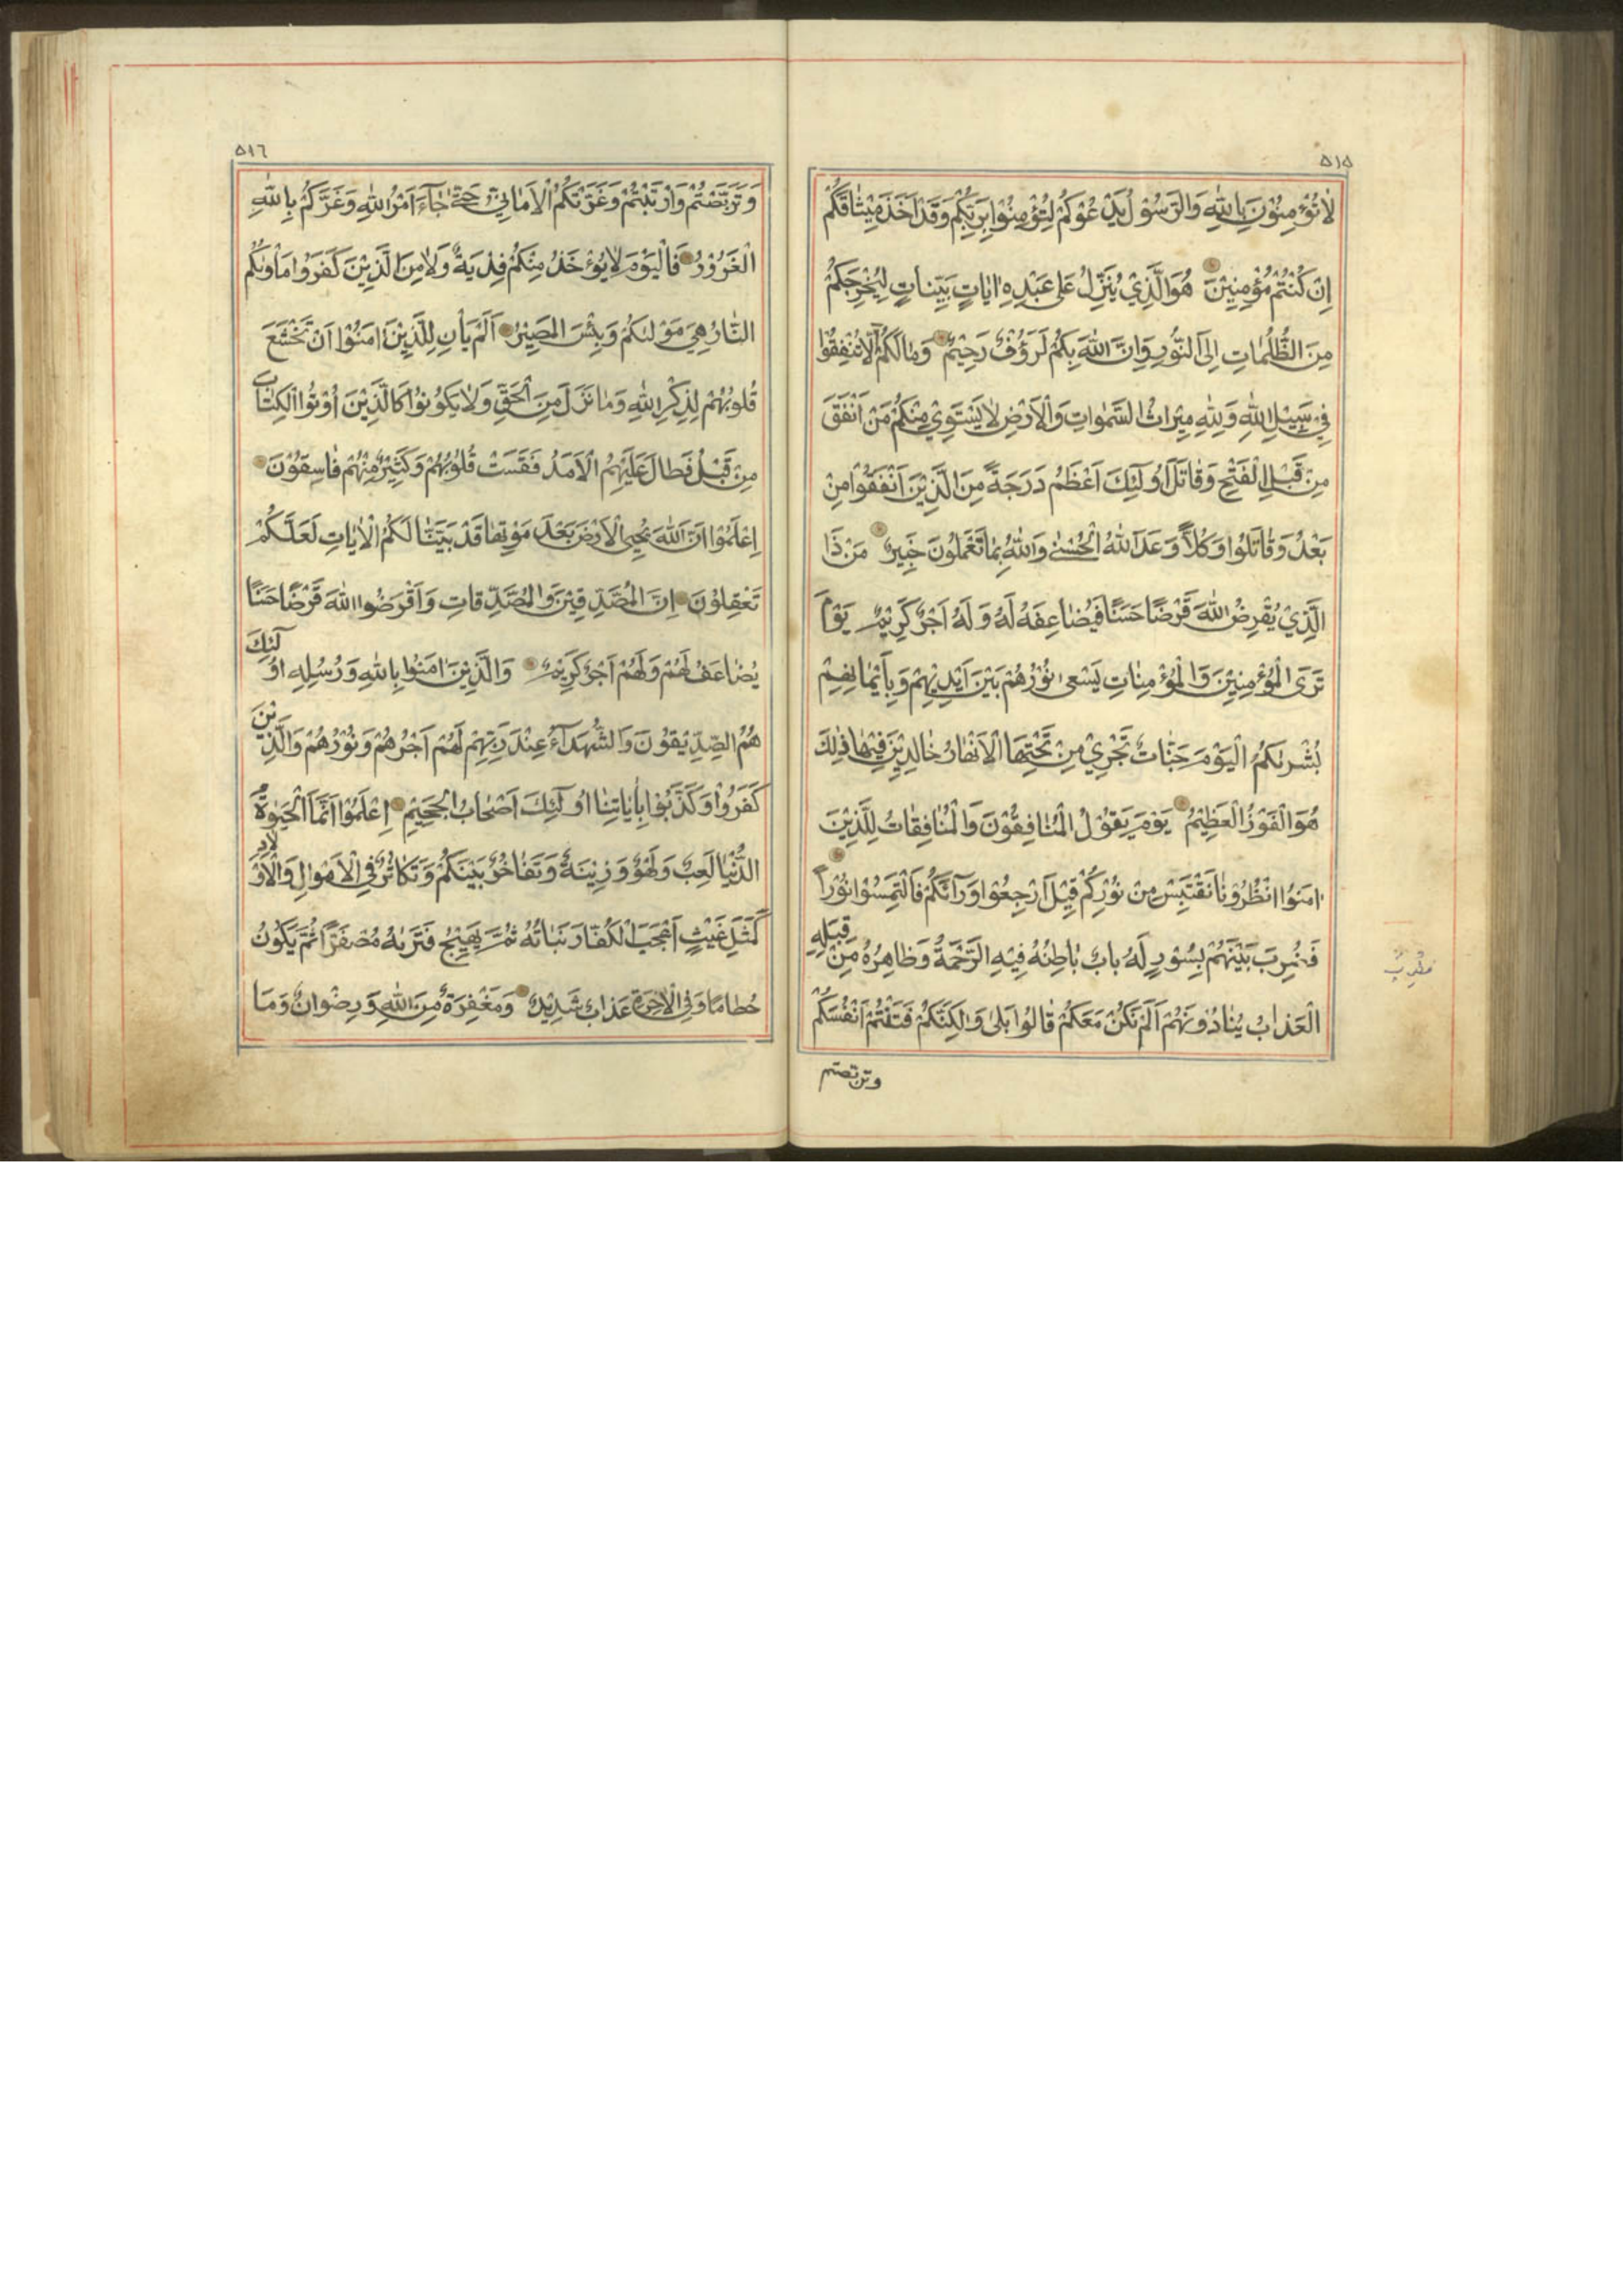 ٥١٥
لَا تُؤْمِنُونَ بِاللّٰهِ وَالرَّسُولُ يَدْعُوكُمْ لِتُؤْمِنُوا بِرَبِّكُمْ وَقَدْ اَخَذَ مِيثَاقَكُمْ
اِنْ كُنْتُمْ مُؤْمِنِينَ هُوَ الَّذِي يُنَزِّلُ عَلٰى عَبْدِهِ اٰيَاتٍ بَيِّنَاتٍ لِيُخْرِجَكُمْ
مِنَ الظُّلُمَاتِ اِلَى النُّورِ وَاِنَّ اللّٰهَ بِكُمْ لَرَؤُفٌ رَحِيمٌ وَمَا لَكُمْ اَلَّا تُنْفِقُوا
فِي سَبِيلِ اللّٰهِ وَلِلّٰهِ مِيرَاثُ السَّمٰوَاتِ وَالْاَرْضِ لَا يَسْتَوِي مِنْكُمْ مَنْ اَنْفَقَ
مِنْ قَبْلِ الْفَتْحِ وَقَاتَلَ اُولٰٓئِكَ اَعْظَمُ دَرَجَةً مِنَ الَّذِينَ اَنْفَقُوا مِنْ
بَعْدُ وَقَاتَلُوا وَكُلًّا وَعَدَ اللّٰهُ الْحُسْنٰى وَاللّٰهُ بِمَا تَعْمَلُونَ خَبِيرٌ مَنْ ذَا
الَّذِي يُقْرِضُ اللّٰهَ قَرْضًا حَسَنًا فَيُضَاعِفَهُ لَهُ وَلَهُ اَجْرٌ كَرِيمٌ يَوْمَ
تَرَى الْمُؤْمِنِينَ وَالْمُؤْمِنَاتِ يَسْعٰى نُورُهُمْ بَيْنَ اَيْدِيهِمْ وَبِاَيْمَانِهِمْ
بُشْرٰىكُمُ الْيَوْمَ جَنَّاتٌ تَجْرِي مِنْ تَحْتِهَا الْاَنْهَارُ خَالِدِينَ فِيهَا ذٰلِكَ
هُوَ الْفَوْزُ الْعَظِيمُ يَوْمَ يَقُولُ الْمُنَافِقُونَ وَالْمُنَافِقَاتُ لِلَّذِينَ
اٰمَنُوا انْظُرُونَا نَقْتَبِسْ مِنْ نُورِكُمْ قِيلَ ارْجِعُوا وَرَآءَكُمْ فَالْتَمِسُوا نُورًا
فَضُرِبَ بَيْنَهُمْ بِسُورٍ لَهُ بَابٌ بَاطِنُهُ فِيهِ الرَّحْمَةُ وَظَاهِرُهُ مِنْ قِبَلِهِ
الْعَذَابُ يُنَادُونَهُمْ اَلَمْ نَكُنْ مَعَكُمْ قَالُوا بَلٰى وَلٰكِنَّكُمْ فَتَنْتُمْ اَنْفُسَكُمْ
وتربصتم
٥١٦
وَتَرَبَّصْتُمْ وَارْتَبْتُمْ وَغَرَّتْكُمُ الْاَمَانِيُّ حَتّٰى جَآءَ اَمْرُ اللّٰهِ وَغَرَّكُمْ بِاللّٰهِ
الْغَرُورُ فَالْيَوْمَ لَا يُؤْخَذُ مِنْكُمْ فِدْيَةٌ وَلَا مِنَ الَّذِينَ كَفَرُوا مَأْوٰىكُمُ
النَّارُ هِيَ مَوْلٰىكُمْ وَبِئْسَ الْمَصِيرُ اَلَمْ يَأْنِ لِلَّذِينَ اٰمَنُوا اَنْ تَخْشَعَ
قُلُوبُهُمْ لِذِكْرِ اللّٰهِ وَمَا نَزَلَ مِنَ الْحَقِّ وَلَا يَكُونُوا كَالَّذِينَ اُوتُوا الْكِتَابَ
مِنْ قَبْلُ فَطَالَ عَلَيْهِمُ الْاَمَدُ فَقَسَتْ قُلُوبُهُمْ وَكَثِيرٌ مِنْهُمْ فَاسِقُونَ
اِعْلَمُوا اَنَّ اللّٰهَ يُحْيِي الْاَرْضَ بَعْدَ مَوْتِهَا قَدْ بَيَّنَّا لَكُمُ الْاٰيَاتِ لَعَلَّكُمْ
تَعْقِلُونَ اِنَّ الْمُصَّدِّقِينَ وَالْمُصَّدِّقَاتِ وَاَقْرَضُوا اللّٰهَ قَرْضًا حَسَنًا
يُضَاعَفُ لَهُمْ وَلَهُمْ اَجْرٌ كَرِيمٌ وَالَّذِينَ اٰمَنُوا بِاللّٰهِ وَرُسُلِهِ اُولٰٓئِكَ
هُمُ الصِّدِّيقُونَ وَالشُّهَدَآءُ عِنْدَ رَبِّهِمْ لَهُمْ اَجْرُهُمْ وَنُورُهُمْ وَالَّذِينَ
كَفَرُوا وَكَذَّبُوا بِاٰيَاتِنَا اُولٰٓئِكَ اَصْحَابُ الْجَحِيمِ اِعْلَمُوا اَنَّمَا الْحَيٰوةُ
الدُّنْيَا لَعِبٌ وَلَهْوٌ وَزِينَةٌ وَتَفَاخُرٌ بَيْنَكُمْ وَتَكَاثُرٌ فِي الْاَمْوَالِ وَالْاَوْلَادِ
كَمَثَلِ غَيْثٍ اَعْجَبَ الْكُفَّارَ نَبَاتُهُ ثُمَّ يَهِيجُ فَتَرٰىهُ مُصْفَرًّا ثُمَّ يَكُونُ
حُطَامًا وَفِي الْاٰخِرَةِ عَذَابٌ شَدِيدٌ وَمَغْفِرَةٌ مِنَ اللّٰهِ وَرِضْوَانٌ وَمَا